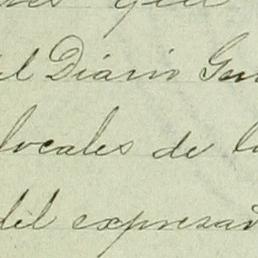 que
el Diario Gen
locales de l
del expresad